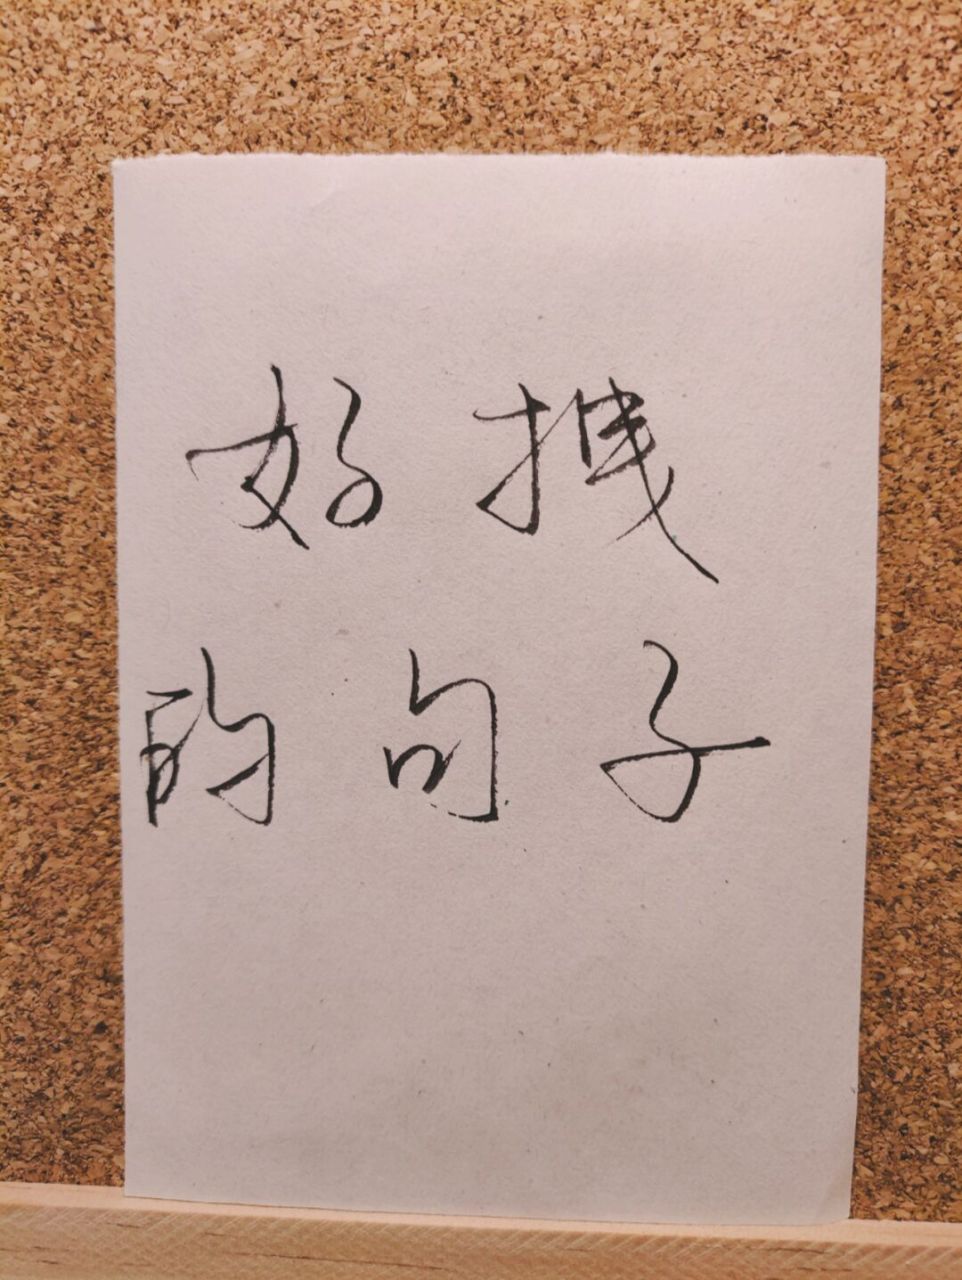 好拽
的句子